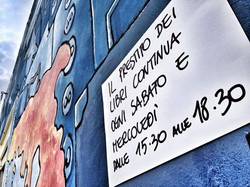 IL PRESTITO DEI
LIBRI CONTINUA
OGNI SABATO E
MERCOLEDÌ
DALLE 15.30 ALLE 18.30